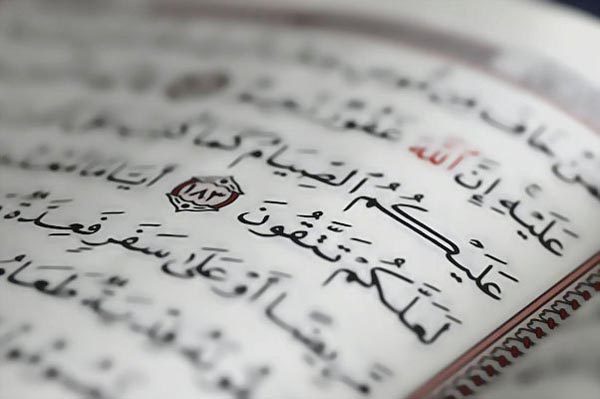 خَافَ مِن مُّوصٍ
عَلَيْهِ إِنَّ ٱللَّهَ غَفُورٌ رَّحِيمٌ
عَلَيْكُمُ ٱلصِّيَامُ كَمَا كُتِبَ
لَعَلَّكُمْ تَتَّقُونَ ١٨٣ أَيَّامًا
مَّرِيضًا أَوْ عَلَىٰ سَفَرٍ فَعِدَّةٌ
فِدْيَةٌ طَعَامُ